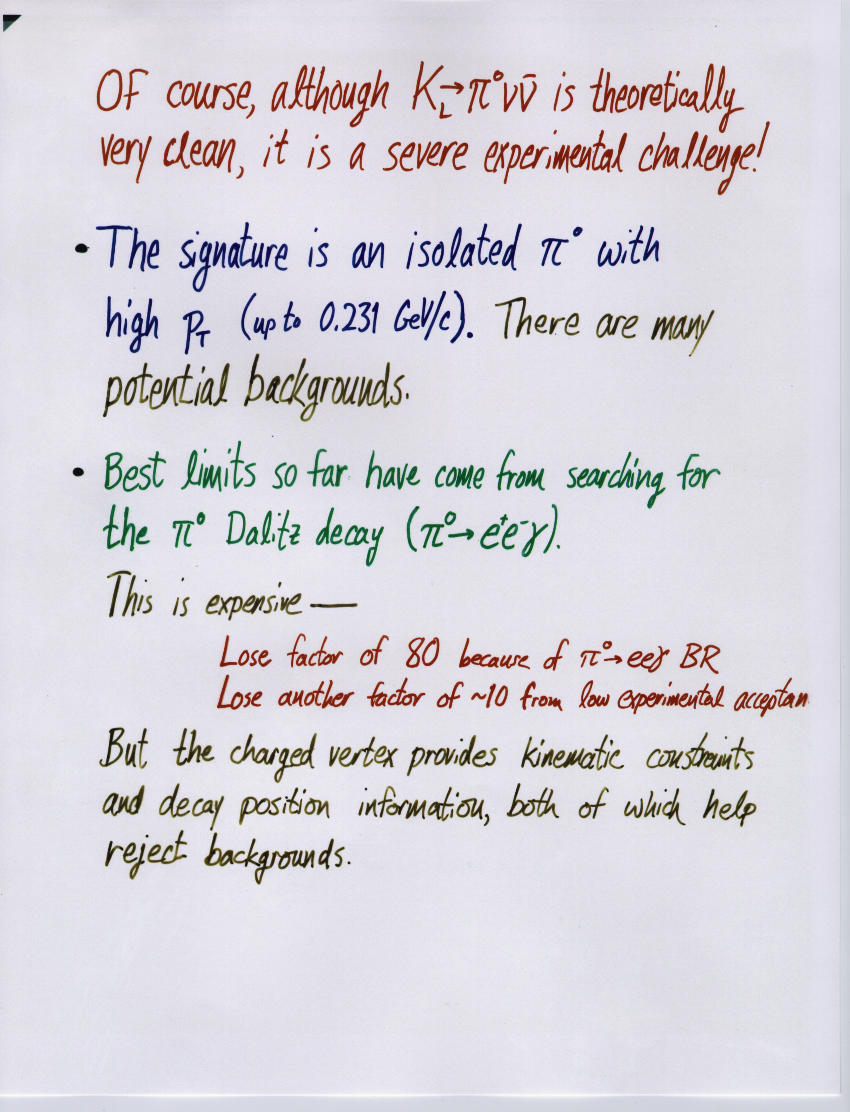 Of course, although K_L→π°νν̄ is theoretically
very clean, it is a severe experimental challenge!
• The signature is an isolated π° with
high p_T (up to 0.231 GeV/c). There are many
potential backgrounds.
• Best limits so far have come from searching for
the π° Dalitz decay (π°→e⁺e⁻γ).
This is expensive —
Lose factor of 80 because of π°→eeγ BR
Lose another factor of ~10 from low experimental acceptan
But the charged vertex provides kinematic constraints
and decay position information, both of which help
reject backgrounds.